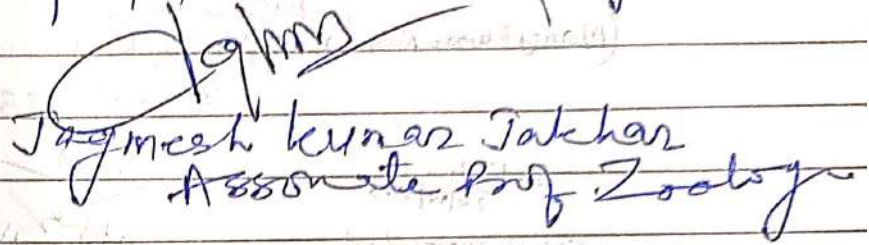 Jagmesh Kumar Jakhar
Associate Prof. Zoology